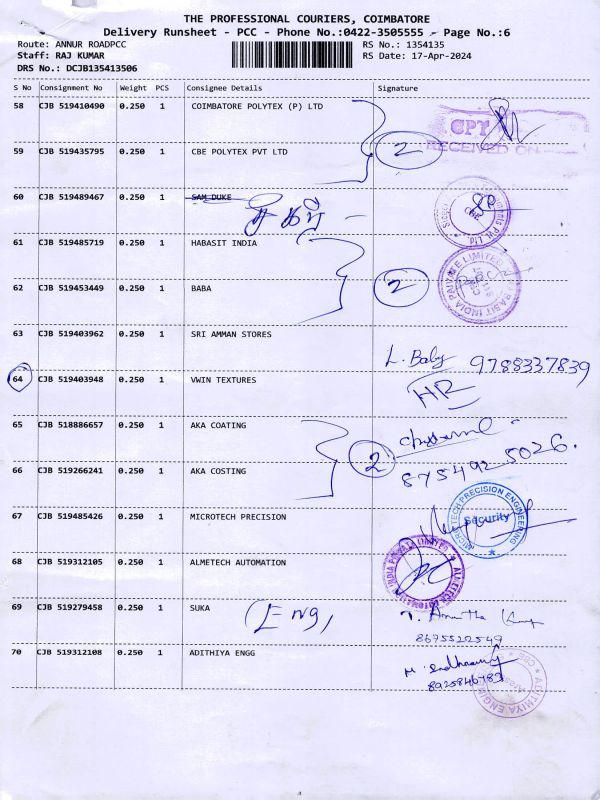 THE PROFESSIONAL COURIERS, COIMBATORE
Delivery Runsheet - PCC - Phone No.:0422-3505555 - Page No.:6
Route: ANNUR ROADPCC
RS No.: 1354135
Staff: RAJ KUMAR
RS Date: 17-Apr-2024
DRS No.: DCJB135413506
S No Consignment No Weight PCS Consignee Details Signature
58 CJB 519410490 0.250 1 COIMBATORE POLYTEX (P) LTD
CPT
RECEIVED ON
59 CJB 519435795 0.250 1 CBE POLYTEX PVT LTD 2
60 CJB 519489467 0.250 1 SAM DUKE
61 CJB 519485719 0.250 1 HABASIT INDIA
62 CJB 519453449 0.250 1 BABA 2
63 CJB 519403962 0.250 1 SRI AMMAN STORES
L. Baby 9788337839
64 CJB 519403948 0.250 1 VWIN TEXTURES HR
65 CJB 518886657 0.250 1 AKA COATING
66 CJB 519266241 0.250 1 AKA COSTING 2 875492 5026.
67 CJB 519485426 0.250 1 MICROTECH PRECISION
MICROTECH PRECISION ENGINEERING
Security
68 CJB 519312105 0.250 1 ALMETECH AUTOMATION
69 CJB 519279458 0.250 1 SUKA (Eng,
8675522549
70 CJB 519312108 0.250 1 ADITHIYA ENGG
8925846783